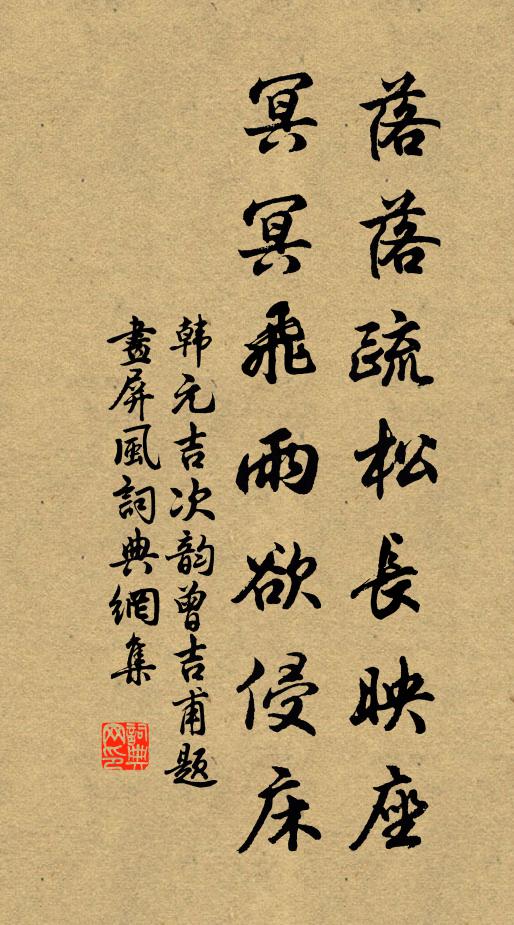 落落疏松長映座
冥冥飛雨欲侵床
韩元吉次韵曾吉甫題
畫屏風詞典網集
詞典网印